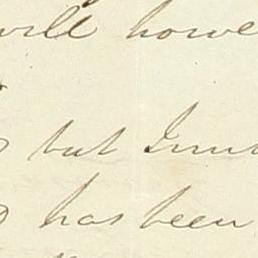 will howe
but Imm
has been